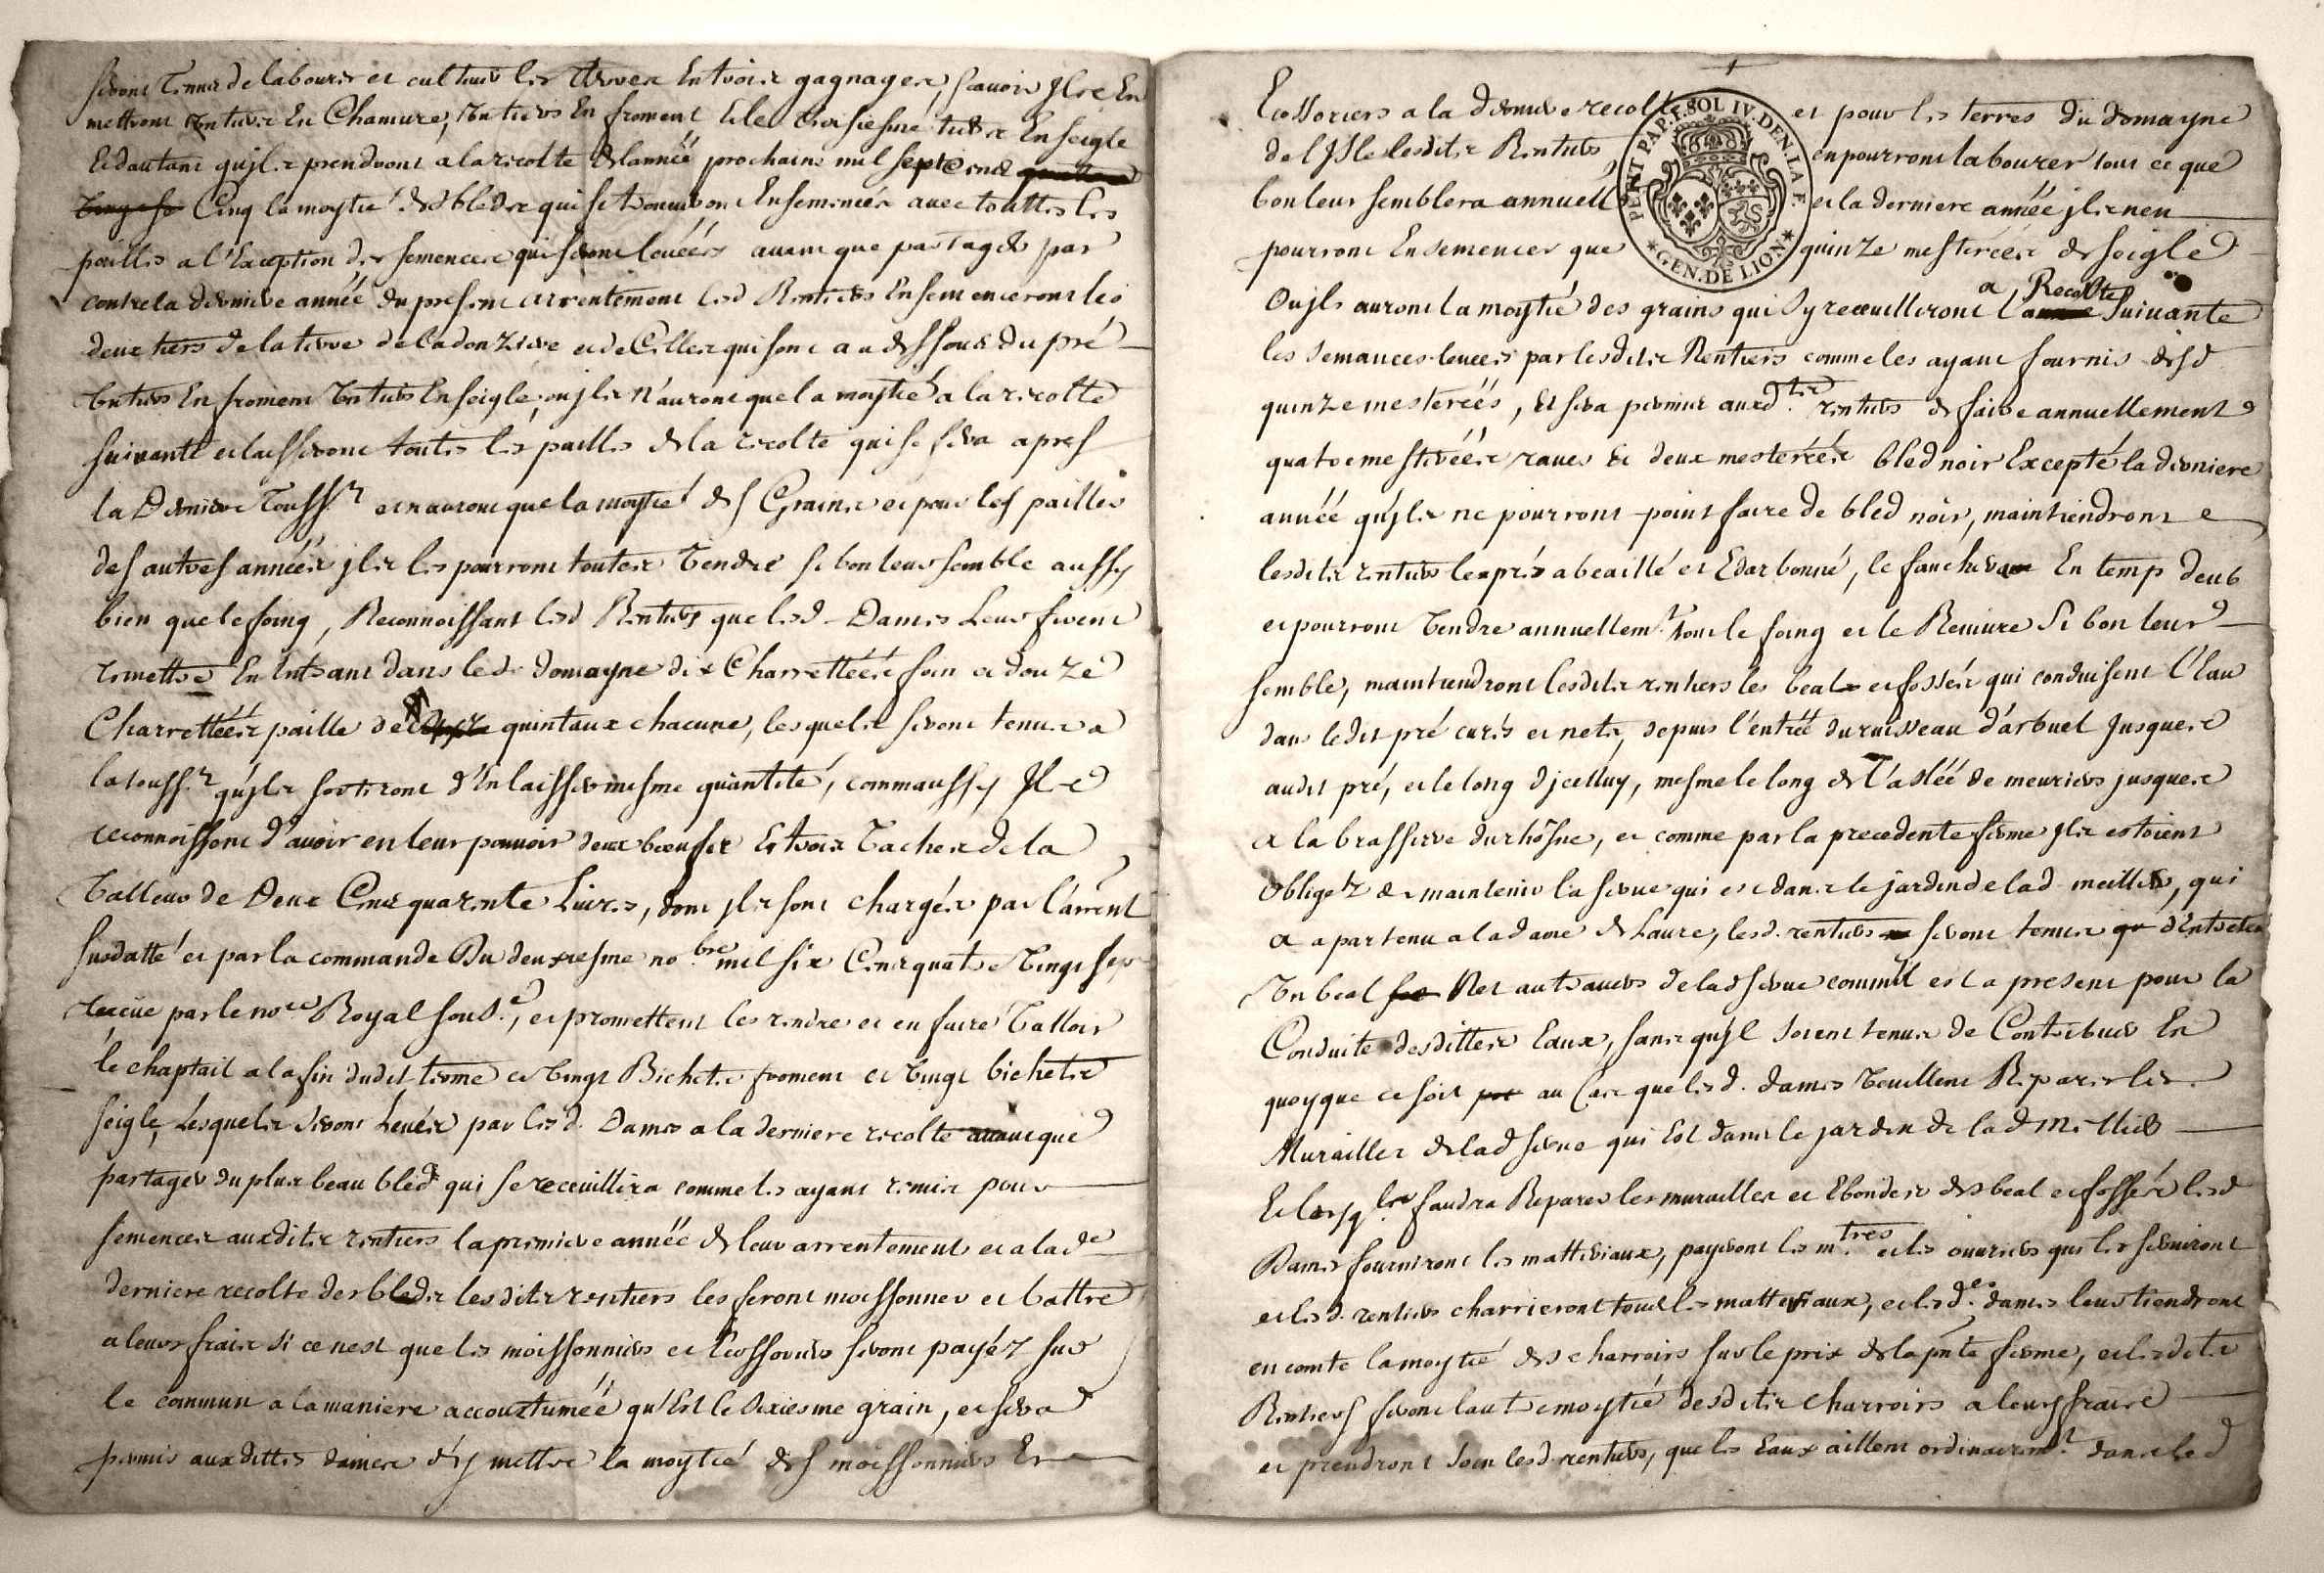 seront tenus de labourer et cultiver les terres En trois gagnages, scavoir Ils En
mettront un tiers En Chanure, un tiers En froment Et le troisiesme tiers En seigle
Et dautant qu'jls prendront a la recolte de lannéé prochaine mil sept Cent
Cinq la moytié des bleds qui se trouveront Ensemencés avec touttes les
pailles a l'Exception des semences qui seront levéés avant que partager par
contre la derniere annéé du present arrentement lesd Rentiers Ensemenceront les
deux tiers de la terre de la donziere et de Cilles qui sont au dessous du pré
un tiers En froment un tiers En seigle, ou jls n'auront que la moytié a la recolte
suivante et laisseront toutes les pailles de la recolte qui se fera apres
la Derniere Touss.t et n'auront que la moytié des Grains et pour les pailles
des autres annéés jls les pourront toutes vendre si bon leur semble aussy
bien que le foing, Reconnoissant lesd Rentiers que lesd. Dames Leur firent
remettre En Entrant dans led. domayne dix Charrettéés foin et douze
Charrettéés paille de quintaux chacune, lesquels seront tenus a
la touss.t qu'jls sortiront d'En laisser mesme quantité, comm'aussy Ils
reconnoissent d'avoir en leur pouvoir deux boeufs Et trois vaches de la
valleur de Deux Cent quarente Livres, dont jls sont chargés par l'arrent
susdatté et par la commande Du deuxiesme no.bre mil six Cent quatre vingt sept
receüe par le no.re Royal sous.é, et promettent les rendre et en faire valloir
le chaptail a la fin dudit terme et vingt Bichets froment et vingt bichets
seigle, Lesquels seront Levés par lesd. Dames a la derniere recolte avant que
partager du plus beau bled qui se receuillira comme les ayant remis pour
semences auxdits rentiers la premiere annéé de leur arrentement et a lad.e
derniere recolte des bleds lesdits rentiers les feront moissonner et battre
a leurs frais si ce nest que les moissonniers et Ecossours seront payéz sur
le commun a la maniere accoustuméé qu'Est le dixiesme grain, et sera
permis auxdittes dames d'ÿ mettre la moytié des moissonniers Et
Ecossoriers a la derniere recolte et pour les terres du domayne
de l'Isle lesdits Rentiers en pourront labourer tout ce que
bon leur semblera annuell et la derniere annéé jls n'en
pourront Ensemencer que quinze mesteréés de seigle
Ou jls auront la moytié des grains qui sy receuilleront a Recolte suivante
les semances levéés par lesdits Rentiers comme les ayant fournis desd
quinze mesteréés, Et sera permis auxd.ts rentiers de faire annuellement
quatre mesteréés raves Et deux mesteréés bled noir Excepté la derniere
annéé qu'jls ne pourront point faire de bled noir, maintiendront
lesdits rentiers les prés abeaillé et Edarbonné, le faucheront En temp deub
et pourront vendre annuellem.t tout le foing et le Reviure Si bon leur
semble, maintiendront lesdits rentiers les beals et fossés qui conduisent l'Eau
dans ledit pré curés et nets, depuis l'entréé du ruisseau d'arbuel Jusques
audit pré, et le long d'jcelluy, mesme le long de l'alléé de meuriers jusques
a la brassiere du rhôsne, et comme par la precedente ferme jls estoient
obligéz de maintenir la serve qui est dans le jardin de lad. meillier, qui
a apartenu a la dame de Laure, lesd. rentiers seront tenus d'Entretenir
un beal Net au travers de lad serve comm'il est a present pour la
Conduite desdittes Eaux, sans qu'jl soient tenus de Contribuer En
quoyque ce soit au Cas que lesd. dames veuillent Reparer les
Murailles de lad serve qui Est dans le jardin de lad Mellier
Et lorsq. faudra Reparer les murailles et Ebondes des beal et fossés lesd
Dames fourniront les matteriaux, payeront les m.tres et les ouvriers qui les serviront
et lesd. rentiers charrieront tout les matteriaux, et lesd.es dames leur tiendront
en comte la moytié des charrois sur le prix de la pnte ferme, et lesdits
Rentiers feront l'autre moytié desdits charrois a leurs frais
et prendront soin lesd. rentiers, que les Eaux aillent ordinairem.t dans led
PETIT PAP. 1. SOL IV. DEN. LA F.
GEN. DE LION